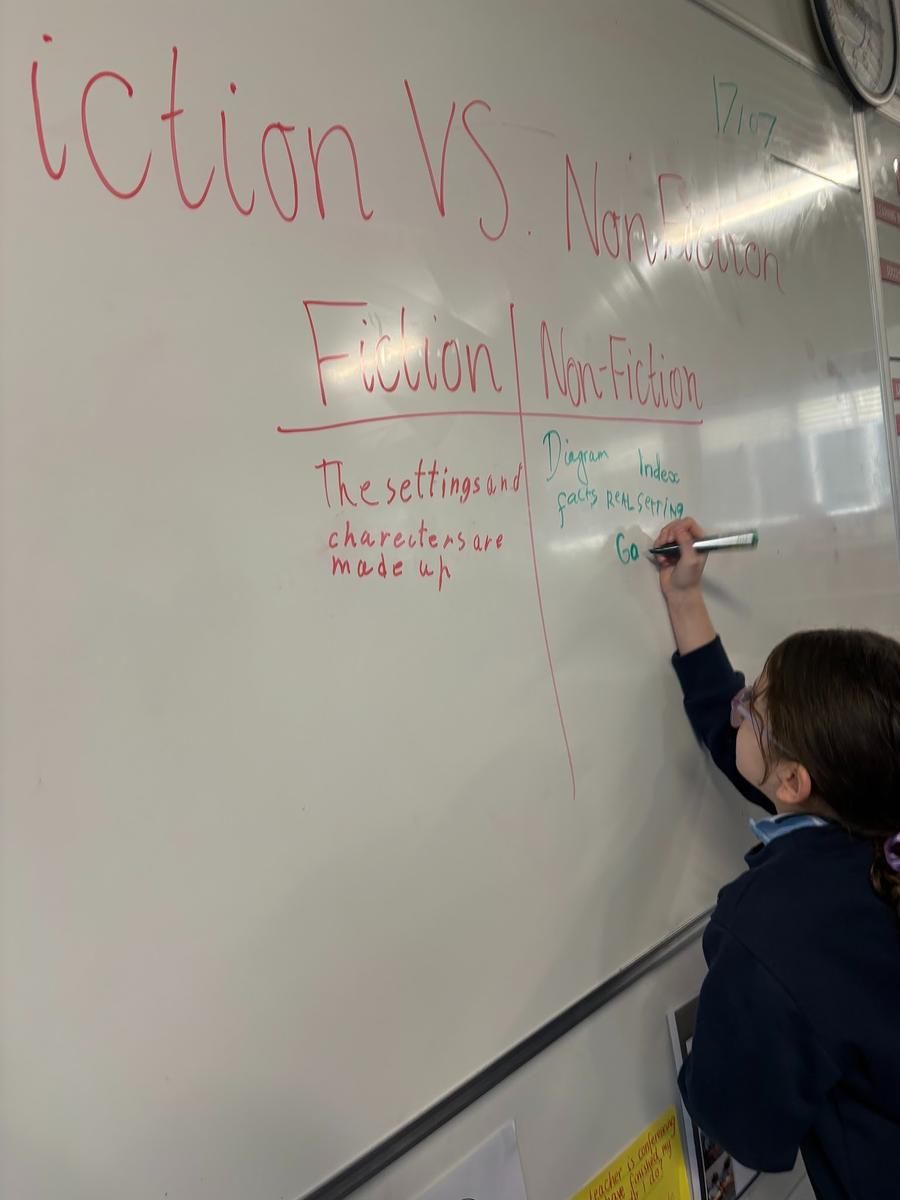 17/07
iction VS. Non Fiction
Fiction Non-Fiction
The settings and
charecters are
made up
Diagram Index
facts REAL SETTING
Go
teacher is conferencing
have finished my
do?